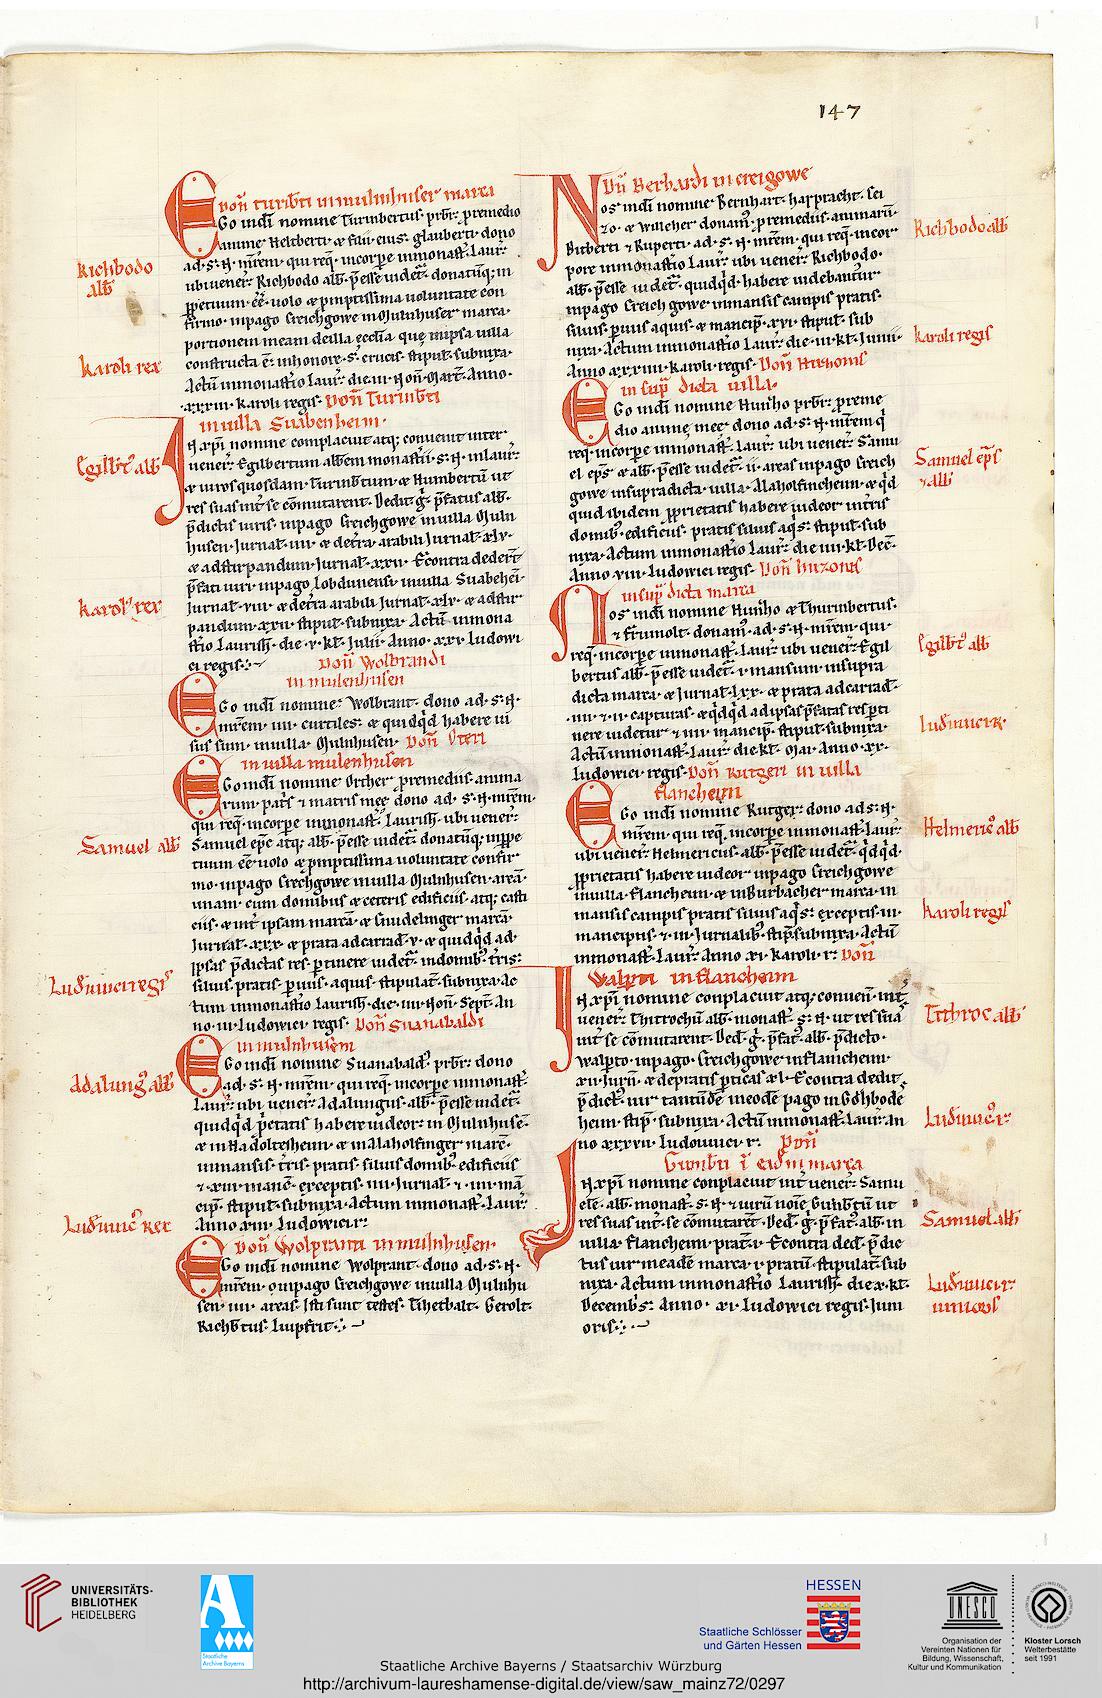 147
Don̄ turib̄ti in mulinhuser marca
Ego in dī nomine Turinbertus pr̄br̄ premedio
anime Heltberti et filii eius glauberti dono
ubi uener̄ Richbodo alb̄ p̄esse uidet̄ donatūq; in
firmo in pago Creichgowe in Mulinhuser marca
portionem meam de illa ecclīa que in ipsa uilla
constructa ē in honore s̄ crucis stipul̄ subnixa
Actū in monast̄io Laur̄ die iii Non̄ Mart̄ Anno
xxxiii Karoli regis Don̄ Turinb̄ti
in uilla Suabenheim
In xp̄i nomine complacuit atq; conuenit inter
uener̄ Egilbertum alb̄em monast̄ii s̄ N̄ in laur̄
et uiros quosdam Turinb̄tum et Humbertū ut
res suas int̄ se cōmutarent Dedit ḡ p̄fatus alb̄
p̄dictis uiris in pago Creichgowe in uilla Muln
husen Jurnal̄ iiii et de tr̄a arabili Jurnal̄ xlv
et ad stirpandum Jurnal̄ xxii E contra dedert̄
p̄fati uiri in pago Lobdunensi in uilla Suabehei
Jurnal̄ viii et de tr̄a arabili Jurnal̄ xlv et ad stir
pandum xxii stipul̄ subnixa Actū in mona
st̄io Laurish̄ die v kl̄ Julii Anno xxv Ludowi
ci regis
Don̄ Wolbrandi
in mulenhusen
Ego in dī nomine Wolbrant dono ad s̄ N̄
mr̄em iii curtiles et quidq̄d habere ui
sus sum in uilla Mulnhusen Don̄ Oteri
in uilla mulenhusen
Ego in dī nomine Otther p̄remediis anima
rum pat̄s et matris mee dono ad s̄ N̄ mr̄em
qui req̄ in corp̄e in monast̄ Laurish̄ ubi uener̄
Samuel ep̄c atq; alb̄ p̄esse uidet̄ donatūq; in pp̄e
tuum eē uolo et p̄mptissima voluntate confir
mo in pago Crechgowe in uilla Mulnhusen areā
unam cum domibus et ceteris edificiis atq; casti
ciis et int̄ ipsam marcā et Guidelinger marcā
Jurnal̄ xxx et prata ad carrad̄ v et quidq̄d ad
ipsas p̄dictas res p̄tinere uidet̄ in domib; t̄ris
siluis pratis p̄uiis aquis stipulat̄ subnixa Ac
tum in monast̄io Laurish̄ die iiii Non̄ Sept̄ An
no iii Ludowici regis Don̄ Suanabaldi
in mulnhusem
Ego in dī nomine Suanabald̄ pr̄br̄ dono
ad s̄ N̄ mr̄em qui req̄ in corp̄e in monast̄
Laur̄ ubi uener̄ Adalungus alb̄ p̄esse uidet̄
Anno xiii Ludowici r̄
Don̄ Wolprant in mulnhusen
Ego in dī nomine Wolprant dono ad s̄ N̄
mr̄em in pago Creichgowe in uilla Mulnhu
sen iiii areas Isti sunt testes Thetbalt Gerolt
Richb̄tus Luipfrit
Richbodo
alb̄
Karoli rex
Egilb̄t alb̄
Karol̄ rex
Samuel alb̄
Ludiuuici regis
Adalung̉ alb̄
Ludiuuic̉ Rex
Dn̄ Berhardi in creigowe
Nos in dī nomine Bernhart harpracht sei
zo et Walcher donam̉ p̄remediis animarū
Bitberti et Ruperti ad s̄ N̄ mr̄em qui req̄ in cor
pore in monast̄io Laur̄ ubi uener̄ Richbodo
alb̄ p̄esse uidet̄ quidq̄d habere uidebantur
in pago Creichgowe in mansis campis pratis
siluis p̄uiis aquis et mancip̄ xvi stipul̄ sub
nixa Actum in monast̄io Laur̄ die iii kl̄ Junii
Anno xxxiii Karoli regis Don̄ Hunonis
in sup̄ dicta uilla
Ego in dī nomine Hunho pr̄br̄ preme
dio anime mee dono ad s̄ N̄ mr̄em q̄
req̄ in corp̄e in monast̄ Laur̄ ubi uener̄ Samu
el ep̄s et alb̄ p̄esse uidet̄ ii areas in pago Creich
gowe in supradicta uilla Alaholfincheim et q̄d
quid ibidem p̄prietatis habere uideor in t̄ris
domib; edificiis pratis siluis aq̄s stipul̄ sub
nixa Actum in monast̄io Laur̄ die iiii kl̄ Dec̄
Anno viii Ludowici regis Don̄ hunonis
in sup̄ dicta marca
Nos in dī nomine Hunho et Thurinbertus
et Erunolt donam̉ ad s̄ N̄ mr̄em qui
req̄ in corp̄e in monast̄ Laur̄ ubi uener̄ Egil
bertus alb̄ p̄esse uidet̄ i mansum in supra
dicta marca et Jurnal̄ lxx et prata ad carrad̄
iiii et ii capturas et q̄dq̄d ad ipsas p̄fatas res p̄ti
nere uidetur et iiii mancip̄ stipul̄ subnixa
Actū in monast̄ Laur̄ die kl̄ Mai Anno xx
Ludowici regis Don̄ Rutgeri in uilla
flancheim
Ego in dī nomine Rutger dono ad s̄ N̄
mr̄em qui req̄ in corp̄e in monast̄ Laur̄
ubi uener̄ Helmericus alb̄ p̄esse uidet̄ q̄dq̄d
p̄prietatis habere uideor in pago Creichgowe
in uilla Flancheim et in Burbacher marca in
mansis campis pratis siluis aq̄s exceptis in
mancipiis et iii Jurnalib; stip̄ subnixa Actū
in monast̄ Laur̄ Anno xi Karoli r̄ Don̄
Walp̄ti in flancheim
In xp̄i nomine conplacuit atq; conuen̄ int̄
uener̄ Thitrochū alb̄ monast̄ s̄ N̄ ut res suā
int̄ se cōmutarent Ded̄ ḡ p̄fat̉ alb̄ p̄dicto
Walp̄to in pago Creichgowe in Flanicheim
p̄dict̉ uir tantūdē in eodē pago in Gdhbode
heim stip̄ subnixa Actū in monast̄ Laur̄ an
no xxxvii Ludouuici r̄ Don̄
Gunb̄ti ī ead̄m marca
In xp̄i nomine conplacuit int̄ uener̄ Samu
elē alb̄ monast̄ s̄ N̄ et uirū noīe Gunb̄tū ut
res suas int̄ se cōmutarēt Ded̄ ḡ p̄fat̉ alb̄ in
uilla Flancheim prat̄ i E contra ded̄ p̄dic
tus uir in eadē marca i pratū stipulat̄ sub
nixa Actum in monast̄io Laurish̄ die x kl̄
Decemb̄s Anno xi Ludowici regis Juni
oris
Richbodo alb̄
Karoli regis
Samuel ep̄s
et alb̄
Egilb̄t̉ alb̄
Ludiuuici R
Helmeric̉ alb̄
Karoli regis
Titroc alb̄
Ludiuuic̉ r̄
Samuel alb̄
Ludiuuici r̄
iunioris
UNIVERSITÄTS-
BIBLIOTHEK
HEIDELBERG
Staatliche
Archive Bayerns
HESSEN
Staatliche Schlösser
und Gärten Hessen
UNESCO
Organisation der
Vereinten Nationen für
Bildung, Wissenschaft,
Kultur und Kommunikation
Kloster Lorsch
Welterbestätte
seit 1991
Staatliche Archive Bayerns / Staatsarchiv Würzburg
http://archivum-laureshamense-digital.de/view/saw_mainz72/0297